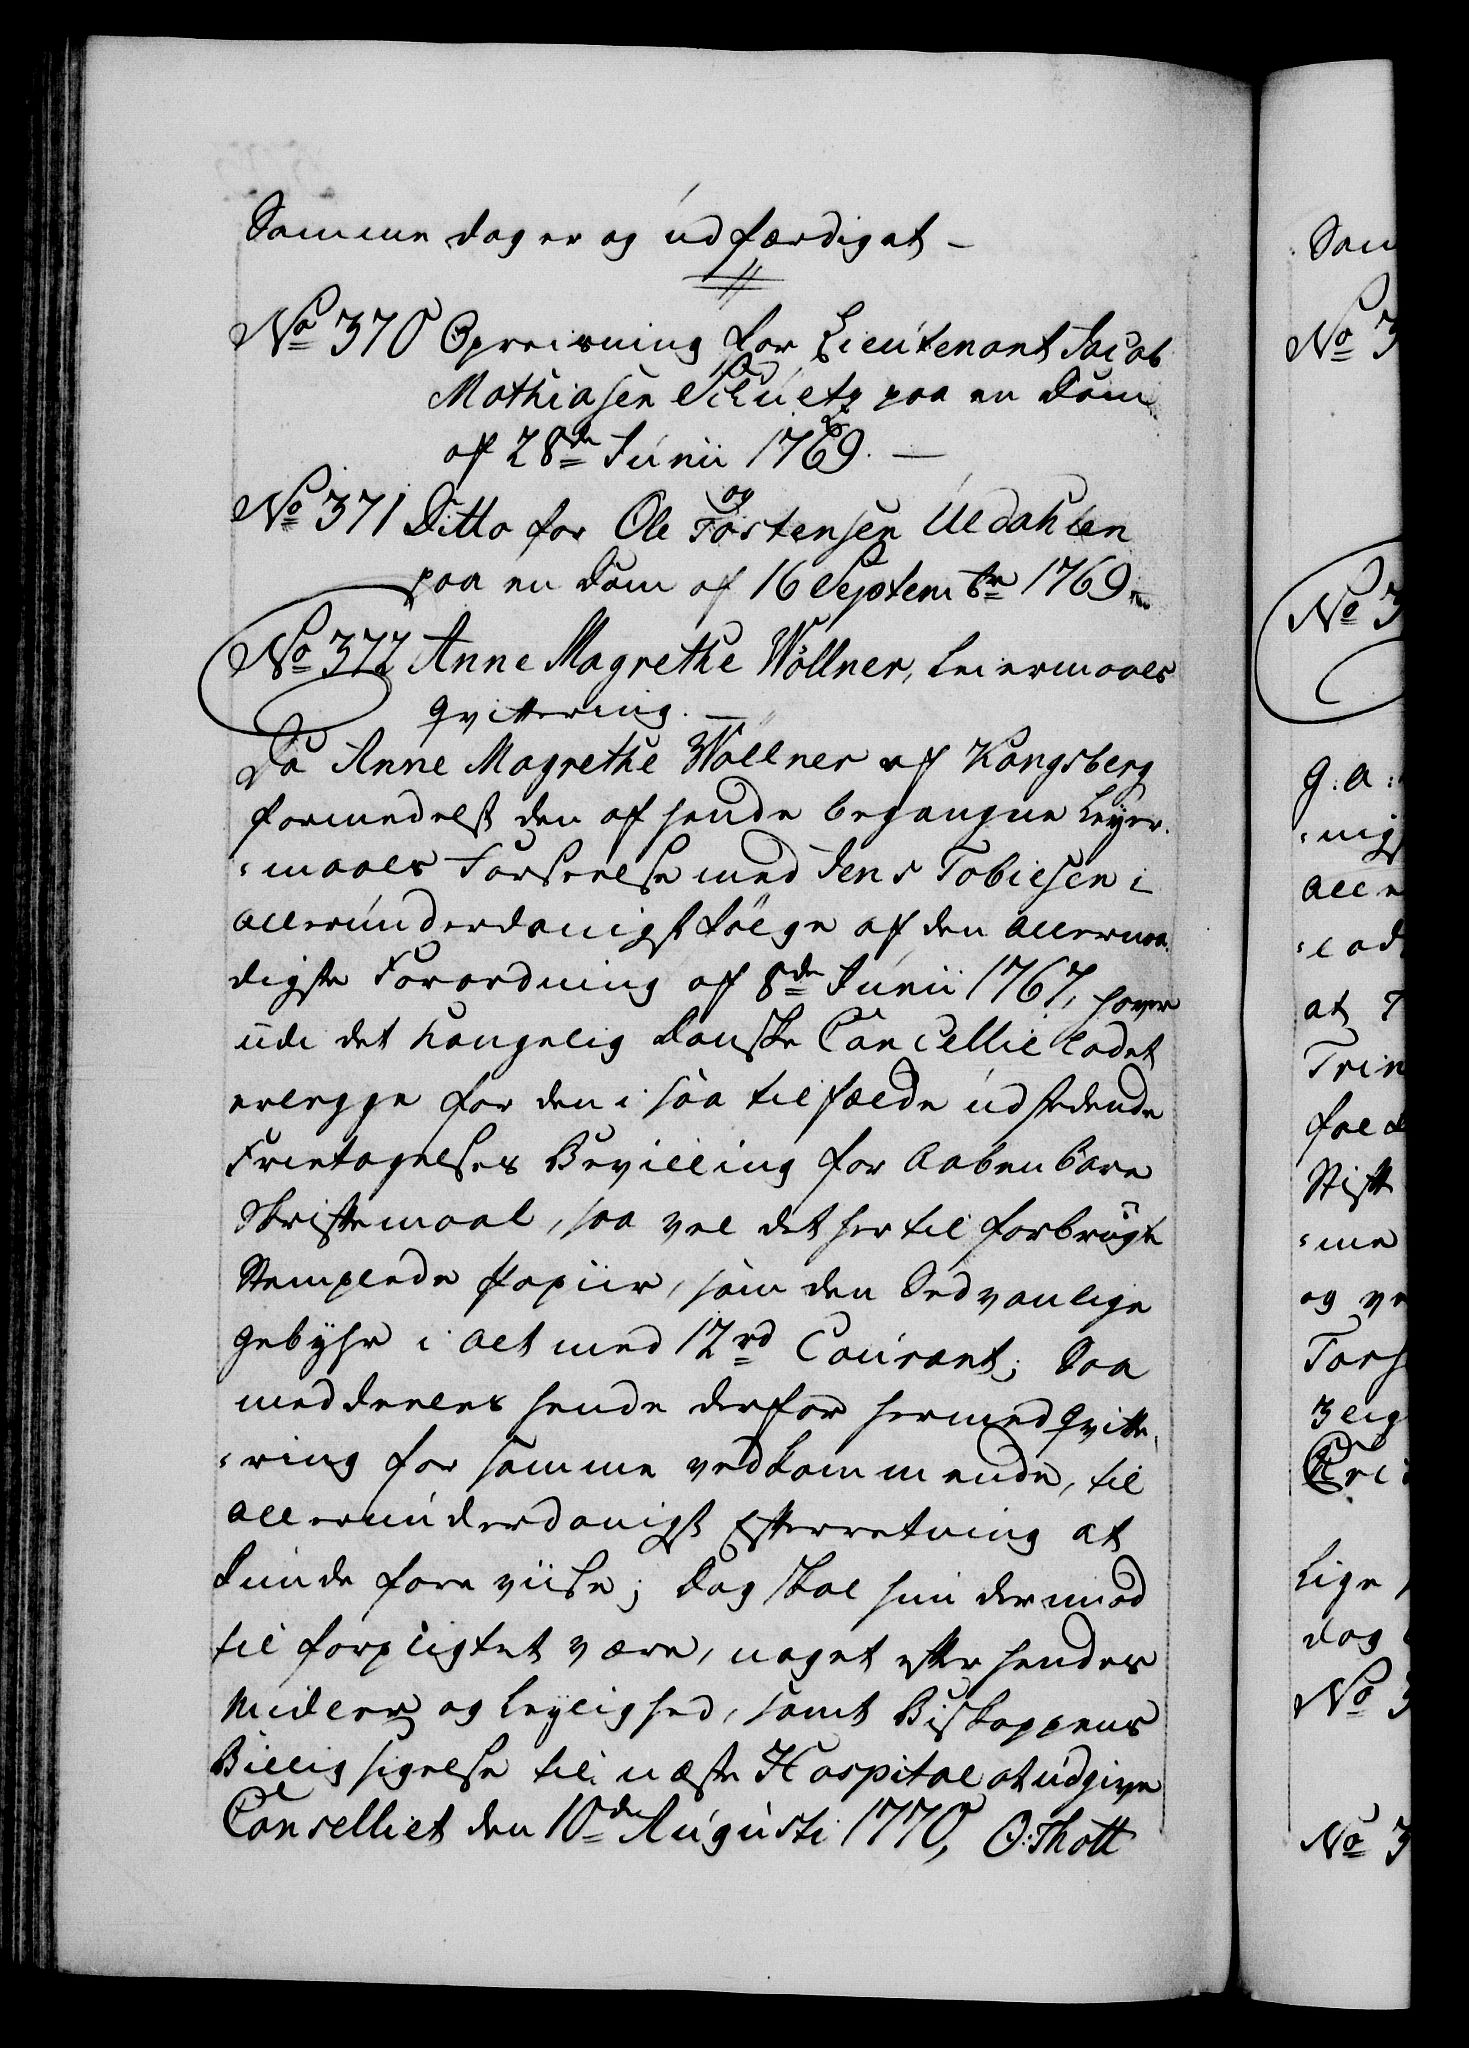 Samme dag er og udfærdiget –
No 370 Opreisning for Lieutenant Jacob
Mathiasen Schuetz paa en Dom
af 28de Junii 1769. —
No 371 Ditto for Ole og Tostensen Uldahlen
paa en Dom af 16 Septembr 1769.
No 372 Anne Magrethe Wöllner, Leiermaals
Qvittering. —
Da Anne Magrethe Wöllner af Kongsberg
formedelst den af hende begangne Leyer-
:maals Forseelse med Jens Tobiesen i
allerunderdanigst Følge af den allernaa-
digste Forordning af 8de Junii 1767, haver
udi det Kongelig Danske Cancellie ladet
erlegge for den i saa tilfælde udstedende
Frietagelses Bevilling for Aabenbare
Skriftemaal, saa vel det hertil forbrugte
Stemplede Papiir, som den Sedvanlige
gebyhr i alt med 12 rd Courant; Saa
meddeeles hende derfor hermed Qvitte-
:ring for samme vedkommende, til
allerunderdanigst Efterretning at
kunde foreviise; dog skal hun dermed
til forpligtet være, noget efter hendes
Midler og Leylighed, samt Biskoppens
Billigsigelse til næste Hospital at udgive
Canselliet den 10de Augusti 1770, O: Thott
Sam
No 3
No 3
g: a:
:nigs
alle
:lad
at T
Trin
fald
Stift
:me
og ve
Torst
3 lig
Cri
Lige
dag
No 3
No 3